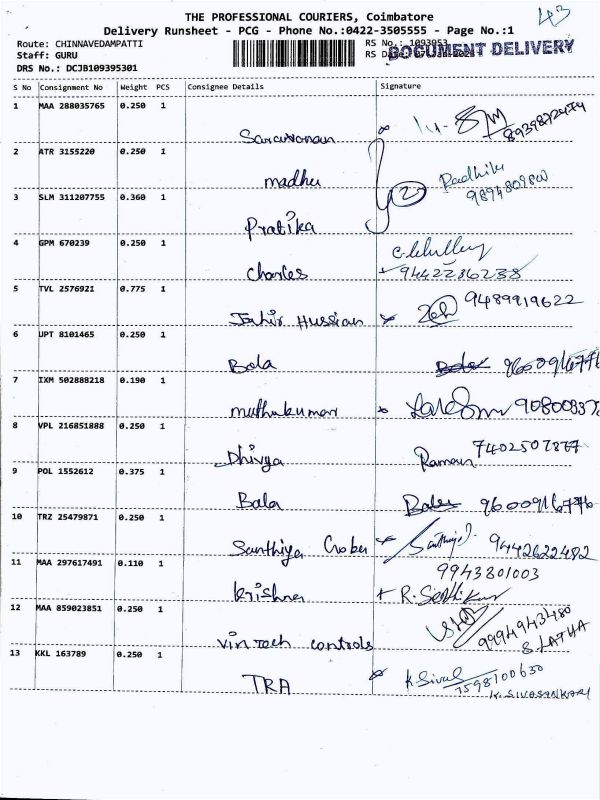 43
THE PROFESSIONAL COURIERS, Coimbatore
Delivery Runsheet - PCG - Phone No.:0422-3505555 - Page No.:1
Route: CHINNAVEDAMPATTI RS No.: 1093953
Staff: GURU RS D DOCUMENT DELIVERY
DRS No.: DCJB109395301
S No Consignment No Weight PCS Consignee Details Signature
1 MAA 288035765 0.250 1
Saravanan 8939872474
2 ATR 3155220 0.250 1
madhu Radhika
3 SLM 311207755 0.360 1
Pratika
4 GPM 670239 0.250 1
Charles 9442286238
5 TVL 2576921 0.775 1
Jahir Hussian 9489919622
6 UPT 8101465 0.250 1
Bala 960091677
7 IXM 502888218 0.190 1
muthukumar 90800837
8 VPL 216851888 0.250 1
Dhivya Raman 7402507877
9 POL 1552612 0.375 1
Bala 9600916776
10 TRZ 25479871 0.250 1
Santhiya 9442622482
11 MAA 297617491 0.110 1 9943801003
krishna
12 MAA 859023851 0.250 1
Vin Tech controls 9994943480
S LATHA
13 KKL 163789 0.250 1
TRA K Siva 7598100630
K. SIVASANKARI